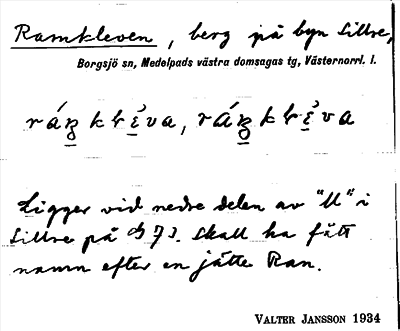 Ramkleven, berg på byn Sillre,
Borgsjö sn, Medelpads västra domsagas tg, Västernorrl. l.
Ligger vid nedre delen av "ll" i
Sillre på G 73. Skall ha fått
namn efter en jätte Ran.
VALTER JANSSON 1934